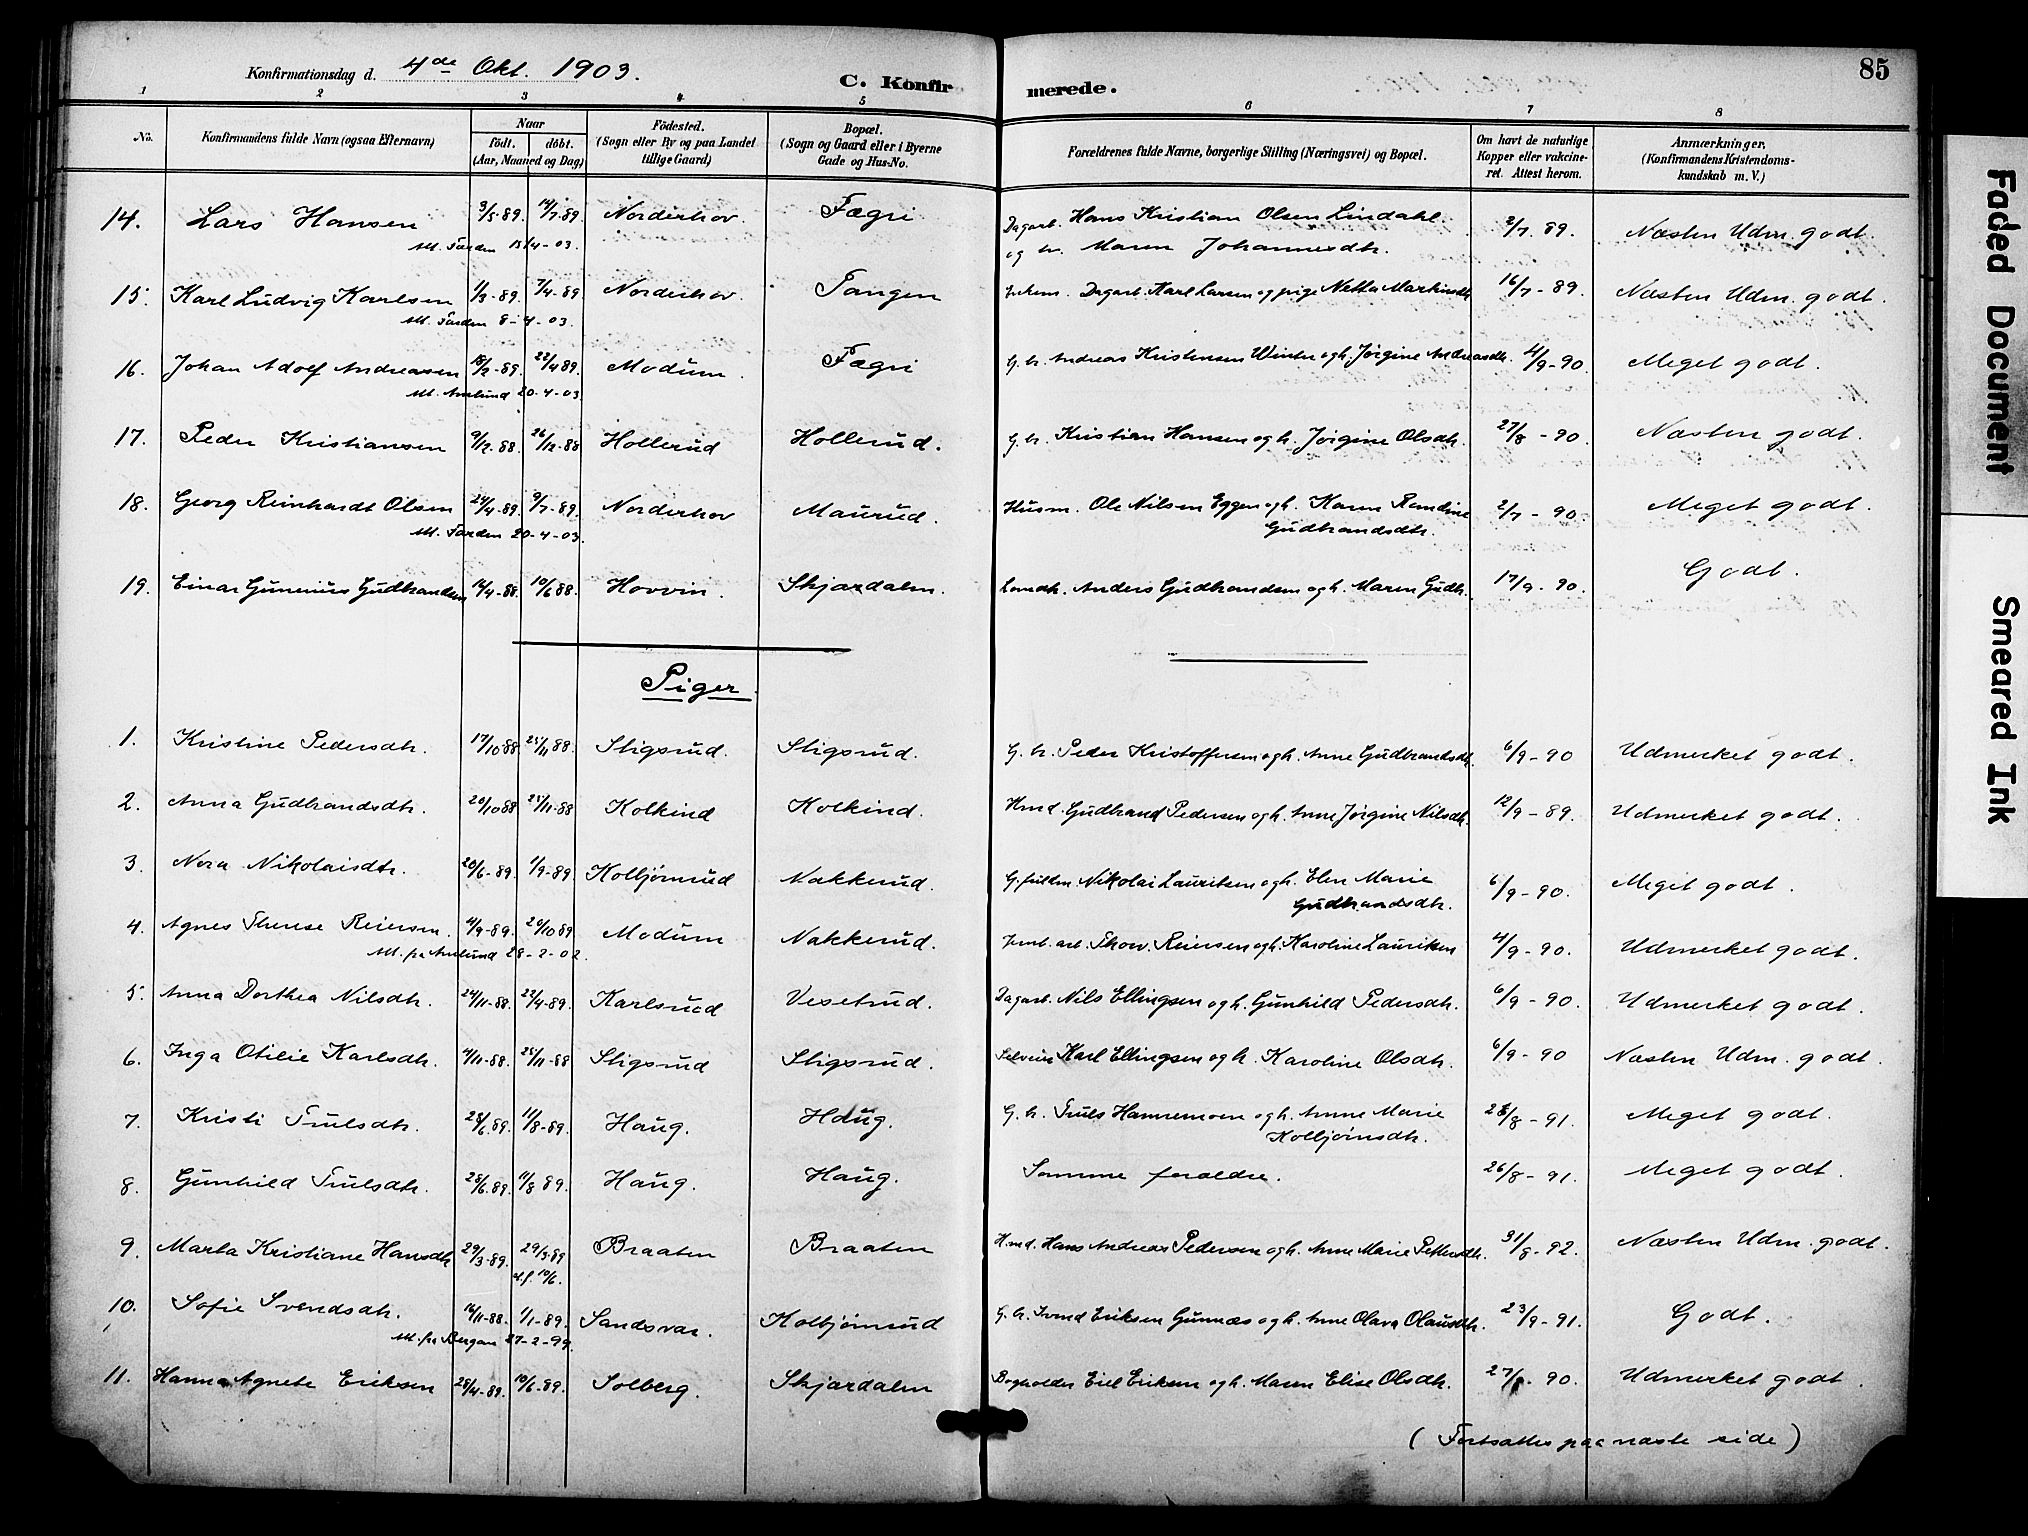 85
Konfirmationsdag d. 4de Okt. 1903.
C. Konfirmerede.
1 2 3 4 5 6 7 8
No. Konfirmandens fulde Navn (ogsaa Efternavn) Naar født. døbt. (Aar, Maaned og Dag) Fødested. (Sogn eller By og paa Landet tillige Gaard) Bopæl. (Sogn og Gaard eller i Byerne Gade og Hus-No. Forældrenes fulde Navne, borgerlige Stilling (Næringsvei) og Bopæl. Om havt de naturlige Kopper eller vakcineret. Attest herom. Anmærkninger. (Konfirmandens Kristendomskundskab m. V.)
14. Lars Hansen 3/5-89. 14/7-89. Norderhov. Fægri Dagarb. Hans Kristian Olsen Lindahl 2/7. 89. Næsten Udm. godt
og h. Maren Johannesdtr.
15/4-03.
15. Karl Ludvig Karlsen 1/3-89. 7/4-89 Norderhov. Tangen Dagarb. Karl Larsen og pige Netta Martinsdtr. 16/7-89. Næsten Udm. godt.
8-4-03.
16. Johan Adolf Andreasen 18/2-89. 22/4 89. Modum. Fægri G. br. Andreas Kristensen Winter og h. Jørgine Andreasdtr. 4/9-90. Meget godt.
20-4-03.
17. Peder Kristiansen 9/12-88. 26/12-88 Hollerud Hollerud. G. br. Kristian Hansen og h. Jørgine Olsdtr. 27/8-90. Næsten godt.
18. Georg Reinhardt Olsen 24/4-89. 9/7-89. Norderhov Maurud. Husm. Ole Nilsen Eggen og h. Karen Randine 2/7-90. Meget godt.
Gudbrandsdtr.
20-4-03.
19. Einar Gunerius Gudbrandsen 14/4-88. 10/6 88. Hovvin. Skjærdalen. Anders Gudbrandsen og h. Maren Gudb. 17/9-90. Godt.
Piger.
1. Kristine Pedersdtr. 17/10 88 25/11 88. Stigsrud. Stigsrud. G. br. Peder Kristoffersen og h. Anne Gudbrandsdtr. 6/9-90 Udmerket godt.
2. Anna Gudbrandsdtr. 20/10 88 25/11-88 Kolkind Kolkind. Hmd. Gudbrand Pedersen og h. Anne Jørgine Nilsdtr. 12/9-89. Udmerket godt.
3. Nora Nikolaisdtr. 20/6-89. 1/9-89 Kolbjørnrud Nakkerud. G. fuldm. Nikolai Lauritsen og h. Elen Marie 6/9-90. Meget godt.
Gudbrandsdtr.
4. Agnes Therese Reiersen. 4/9-89. 20/10 89 Modum Nakkerud. Jernb. arb. Thorv. Reiersen og h. Karoline Lauritsen 4/9-90. Udmerket godt.
28-2-02.
5. Anna Dorthea Nilsdtr. 24/11-88. 22/4-89. Karlsrud Vesetrud. Dagarb. Nils Ellingsen og h. Gunhild Pedersdtr. 6/9-90. Udmerket godt.
6. Inga Otilie Karlsdtr. 4/11-88. 25/11-88 Stigsrud Stigsrud. Selveier Karl Ellingsen og h. Karoline Olsdtr. 6/9-90 Næsten Udm. godt.
7. Kristi Trulsdtr. 28/6.89. 11/8-89. Haug. Haug. G. br. Truls Hannemoen og h. Anne Marie 28/8-91. Meget godt.
Kolbjørnsdtr.
8. Gunhild Trulsdtr. 28/6.89. 11/8 89. Haug. Haug. Samme forældre. 26/8-91. Meget godt.
9. Marta Kristiane Hansdtr. 29/3-89. 29/3-89 Braaten Braaten Hmd. Hans Andreas Pedersen og h. Anne Marie Pettersdtr. 31/8-92. Næsten Udm. godt.
10/6.
10. Sofie Svendsdtr. 14/11-88. 1/1-89. Sandsvær. Kolbjørnrud G. br. Svend Eriksen Gunnæs og h. Anne Olava Olausdtr. 23/9-91. Godt.
M. fra Bergan 27-2-99.
11. Hanna Agnete Eriksen 28/4-89. 10/6-89. Solberg. Skjærdalen Bogholder Eriksen og h. Maren Elise Olsdtr. 90. Udmerket godt.
(Fortsættes paa næste side)
Faded Document
Smeared Ink